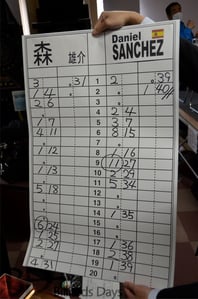 森 雄介 Daniel SANCHEZ
3 . 31 1 2 . 39
1 4 2 1 40
2 6 3
4 2 4
1 7 5 3 7
4 11 6 8 15
7
1 12 8 1 16
9 11 27
1 13 10 2 29
5 18 11 5 34
12
13
14 1 35
15
6 24 16
1 25 17 1 36
2 27 18 2 38
19 1 39
4 31 20
Days